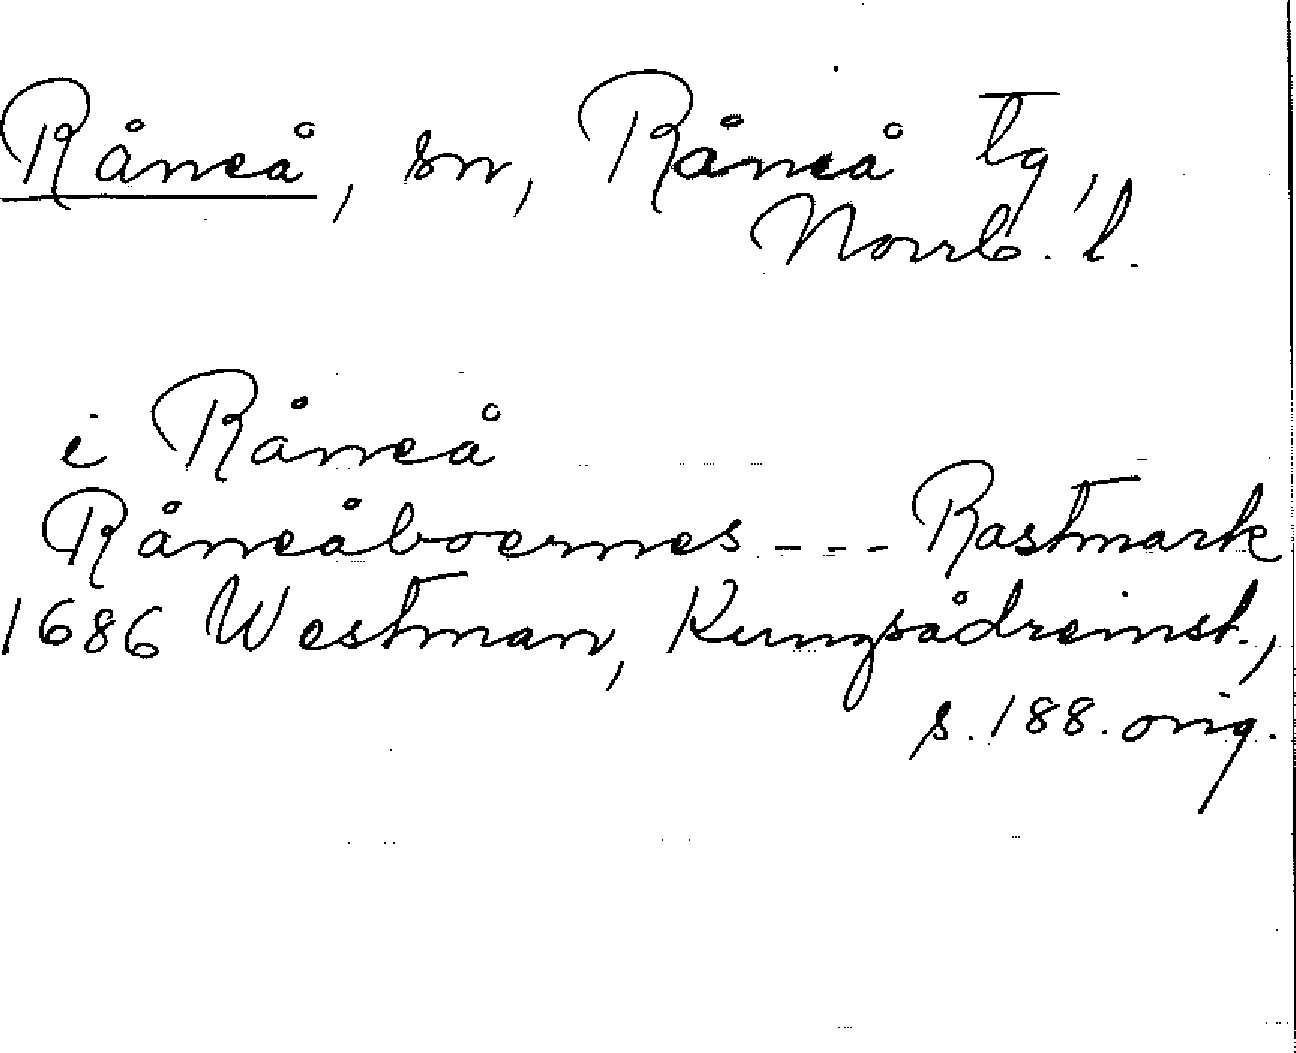 Råneå, sn, Råneå tg,
Norrb. l.
i Råneå
Råneåboernes - - - Rastmark
1686 Westman, Kungsådreinst.,
s. 188. orig.